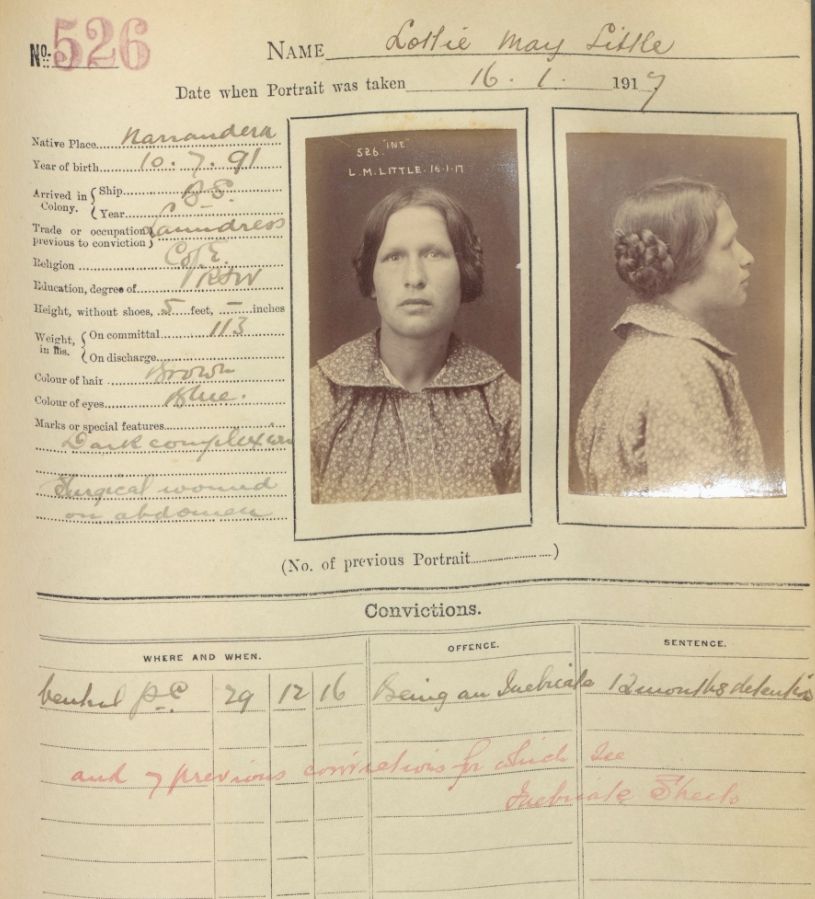 No. 526
NAME Lottie May Little
Date when Portrait was taken 16. 1. 1917
Native Place Narrandera
Year of birth 10. 7. 91
Arrived in Colony. { Ship B.S.
Year
Trade or occupation previous to conviction } Laundress
Religion C of E.
Education, degree of R & W
Height, without shoes, 5 feet, – inches
Weight, in lbs. { On committal 113
On discharge
Colour of hair Brown
Colour of eyes Blue.
Marks or special features
Dark complexion
Surgical wound
on abdomen
526 "INE"
L.M.LITTLE. 16-1-17
(No. of previous Portrait )
Convictions.
WHERE AND WHEN. OFFENCE. SENTENCE.
Central P.C 29 12 16 Being an Inebriate 12 months detention
and 7 previous convictions for which see
Inebriate Sheets